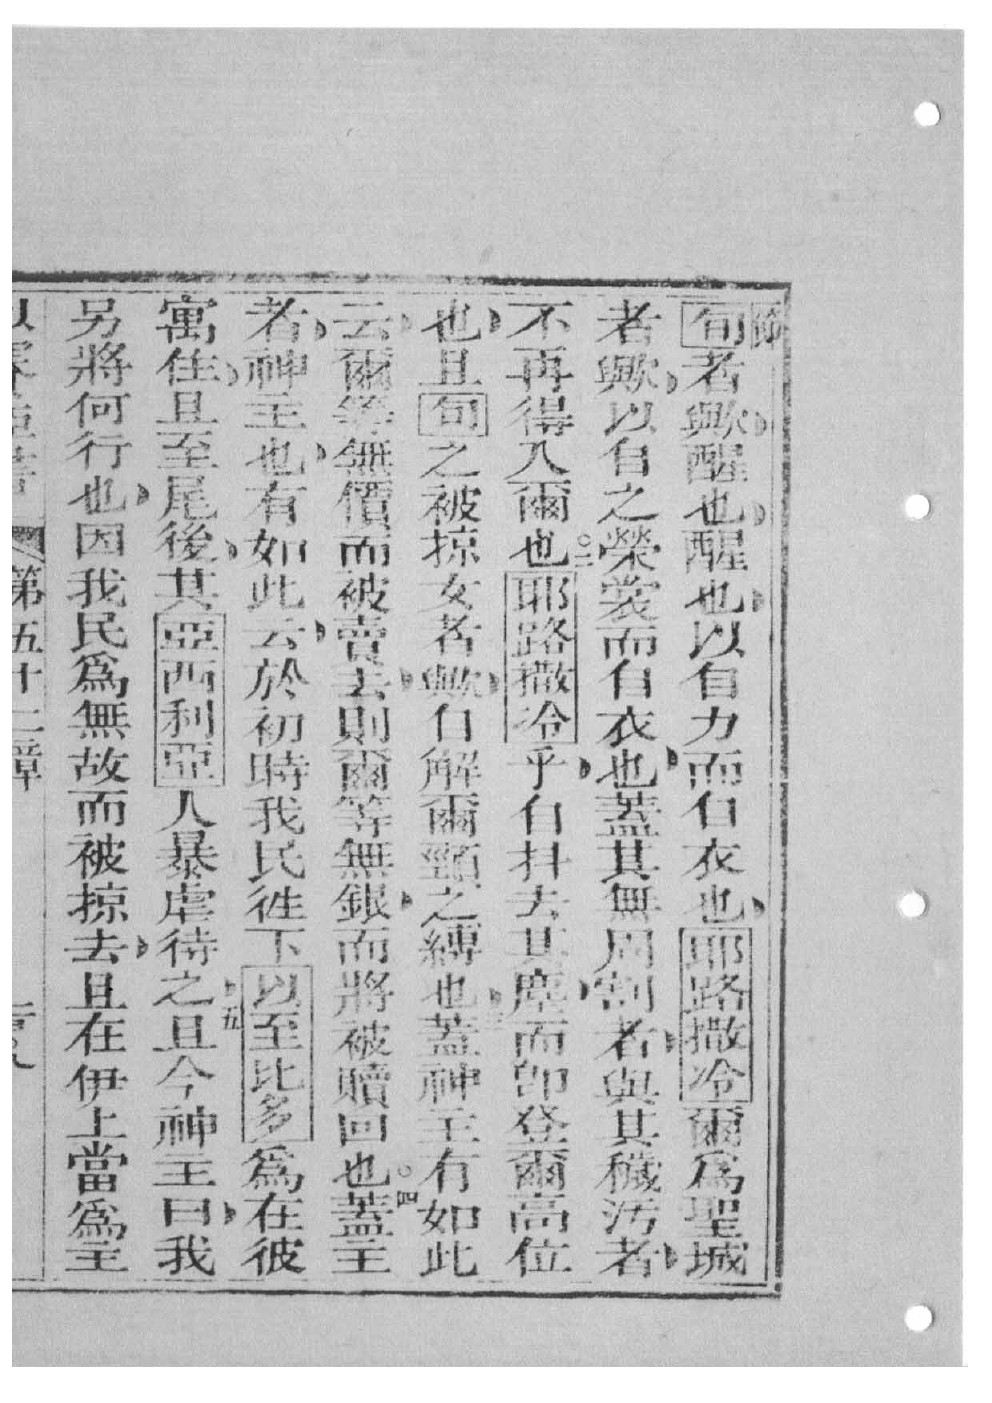 節
旬者歟醒也醒也以自力而自衣也耶路撒冷爾爲聖城
者歟以自之榮裳而自衣也蓋其無周割者與其穢污者
不再得入爾也○二耶路撒冷乎自抖去其塵而卽登爾高位
也且旬之被掠女者歟自解爾頸之縛也○三蓋神主有如此
云爾等無價而被賣去則爾等無銀而將被贖回也○四蓋主
者神主也有如此云於初時我民徃下以至比多爲在彼
寓住且至尾後其亞西利亞人暴虐待之五且今神主曰我
另將何行也因我民爲無故而被掠去且在伊上當爲主
第五十二章